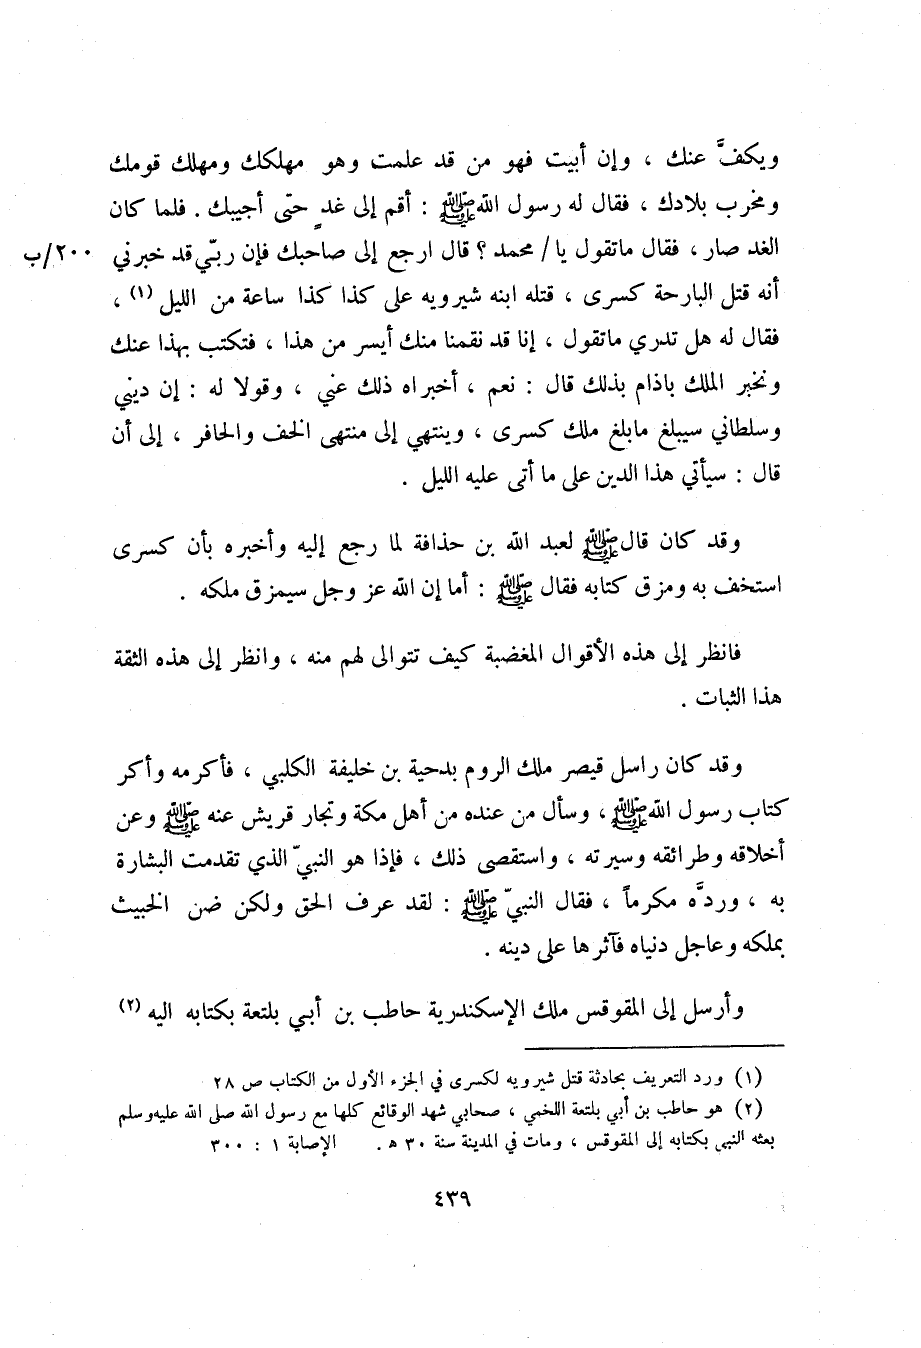 ويكفَّ عنك ، وإن أبيت فهو من قد علمت وهو مهلكك ومهلك قومك
ومخرب بلادك ، فقال له رسول الله ﷺ : أقم إلى غدٍ حتى أجيبك . فلما كان
الغد صار ، فقال ماتقول يا / محمد ؟ قال ارجع إلى صاحبك فإن ربّي قد خبرني ٢٠٠/ب
أنه قتل البارحة كسرى ، قتله ابنه شيرويه على كذا كذا ساعة من الليل (١) ،
فقال له هل تدري ماتقول ، إنا قد نقمنا منك أيسر من هذا ، فتكتب بهذا عنك
ونخبر الملك باذام بذلك قال : نعم ، أخبراه ذلك عني ، وقولا له : إن ديني
وسلطاني سيبلغ مابلغ ملك كسرى ، وينتهي إلى منتهى الخف والحافر ، إلى أن
قال : سيأتي هذا الدين على ما أتى عليه الليل .
وقد كان قال ﷺ لعبد الله بن حذافة لما رجع إليه وأخبره بأن كسرى
استخف به ومزق كتابه فقال ﷺ : أما إن الله عز وجل سيمزق ملكه .
فانظر إلى هذه الأقوال المغضبة كيف تتوالى لهم منه ، وانظر إلى هذه الثقة
هذا الثبات .
وقد كان راسل قيصر ملك الروم بدحية بن خليفة الكلبي ، فأكرمه وأكر
كتاب رسول الله ﷺ ، وسأل من عنده من أهل مكة وتجار قريش عنه ﷺ وعن
أخلاقه وطرائقه وسيرته ، واستقصى ذلك ، فإذا هو النبيّ الذي تقدمت البشارة
به ، وردَّه مكرماً ، فقال النبيّ ﷺ : لقد عرف الحق ولكن ضن الخبيث
بملكه وعاجل دنياه فآثرها على دينه .
وأرسل إلى المقوقس ملك الإسكندرية حاطب بن أبي بلتعة بكتابه اليه (٢)
(١) ورد التعريف بحادثة قتل شيرويه لكسرى في الجزء الأول من الكتاب ص ٢٨
(٢) هو حاطب بن أبي بلتعة اللخمي ، صحابي شهد الوقائع كلها مع رسول الله صلى الله عليه وسلم
بعثه النبي بكتابه إلى المقوقس ، ومات في المدينة سنة ٣٠ ه . الإصابة ١ : ٣٠٠
٤٣٩